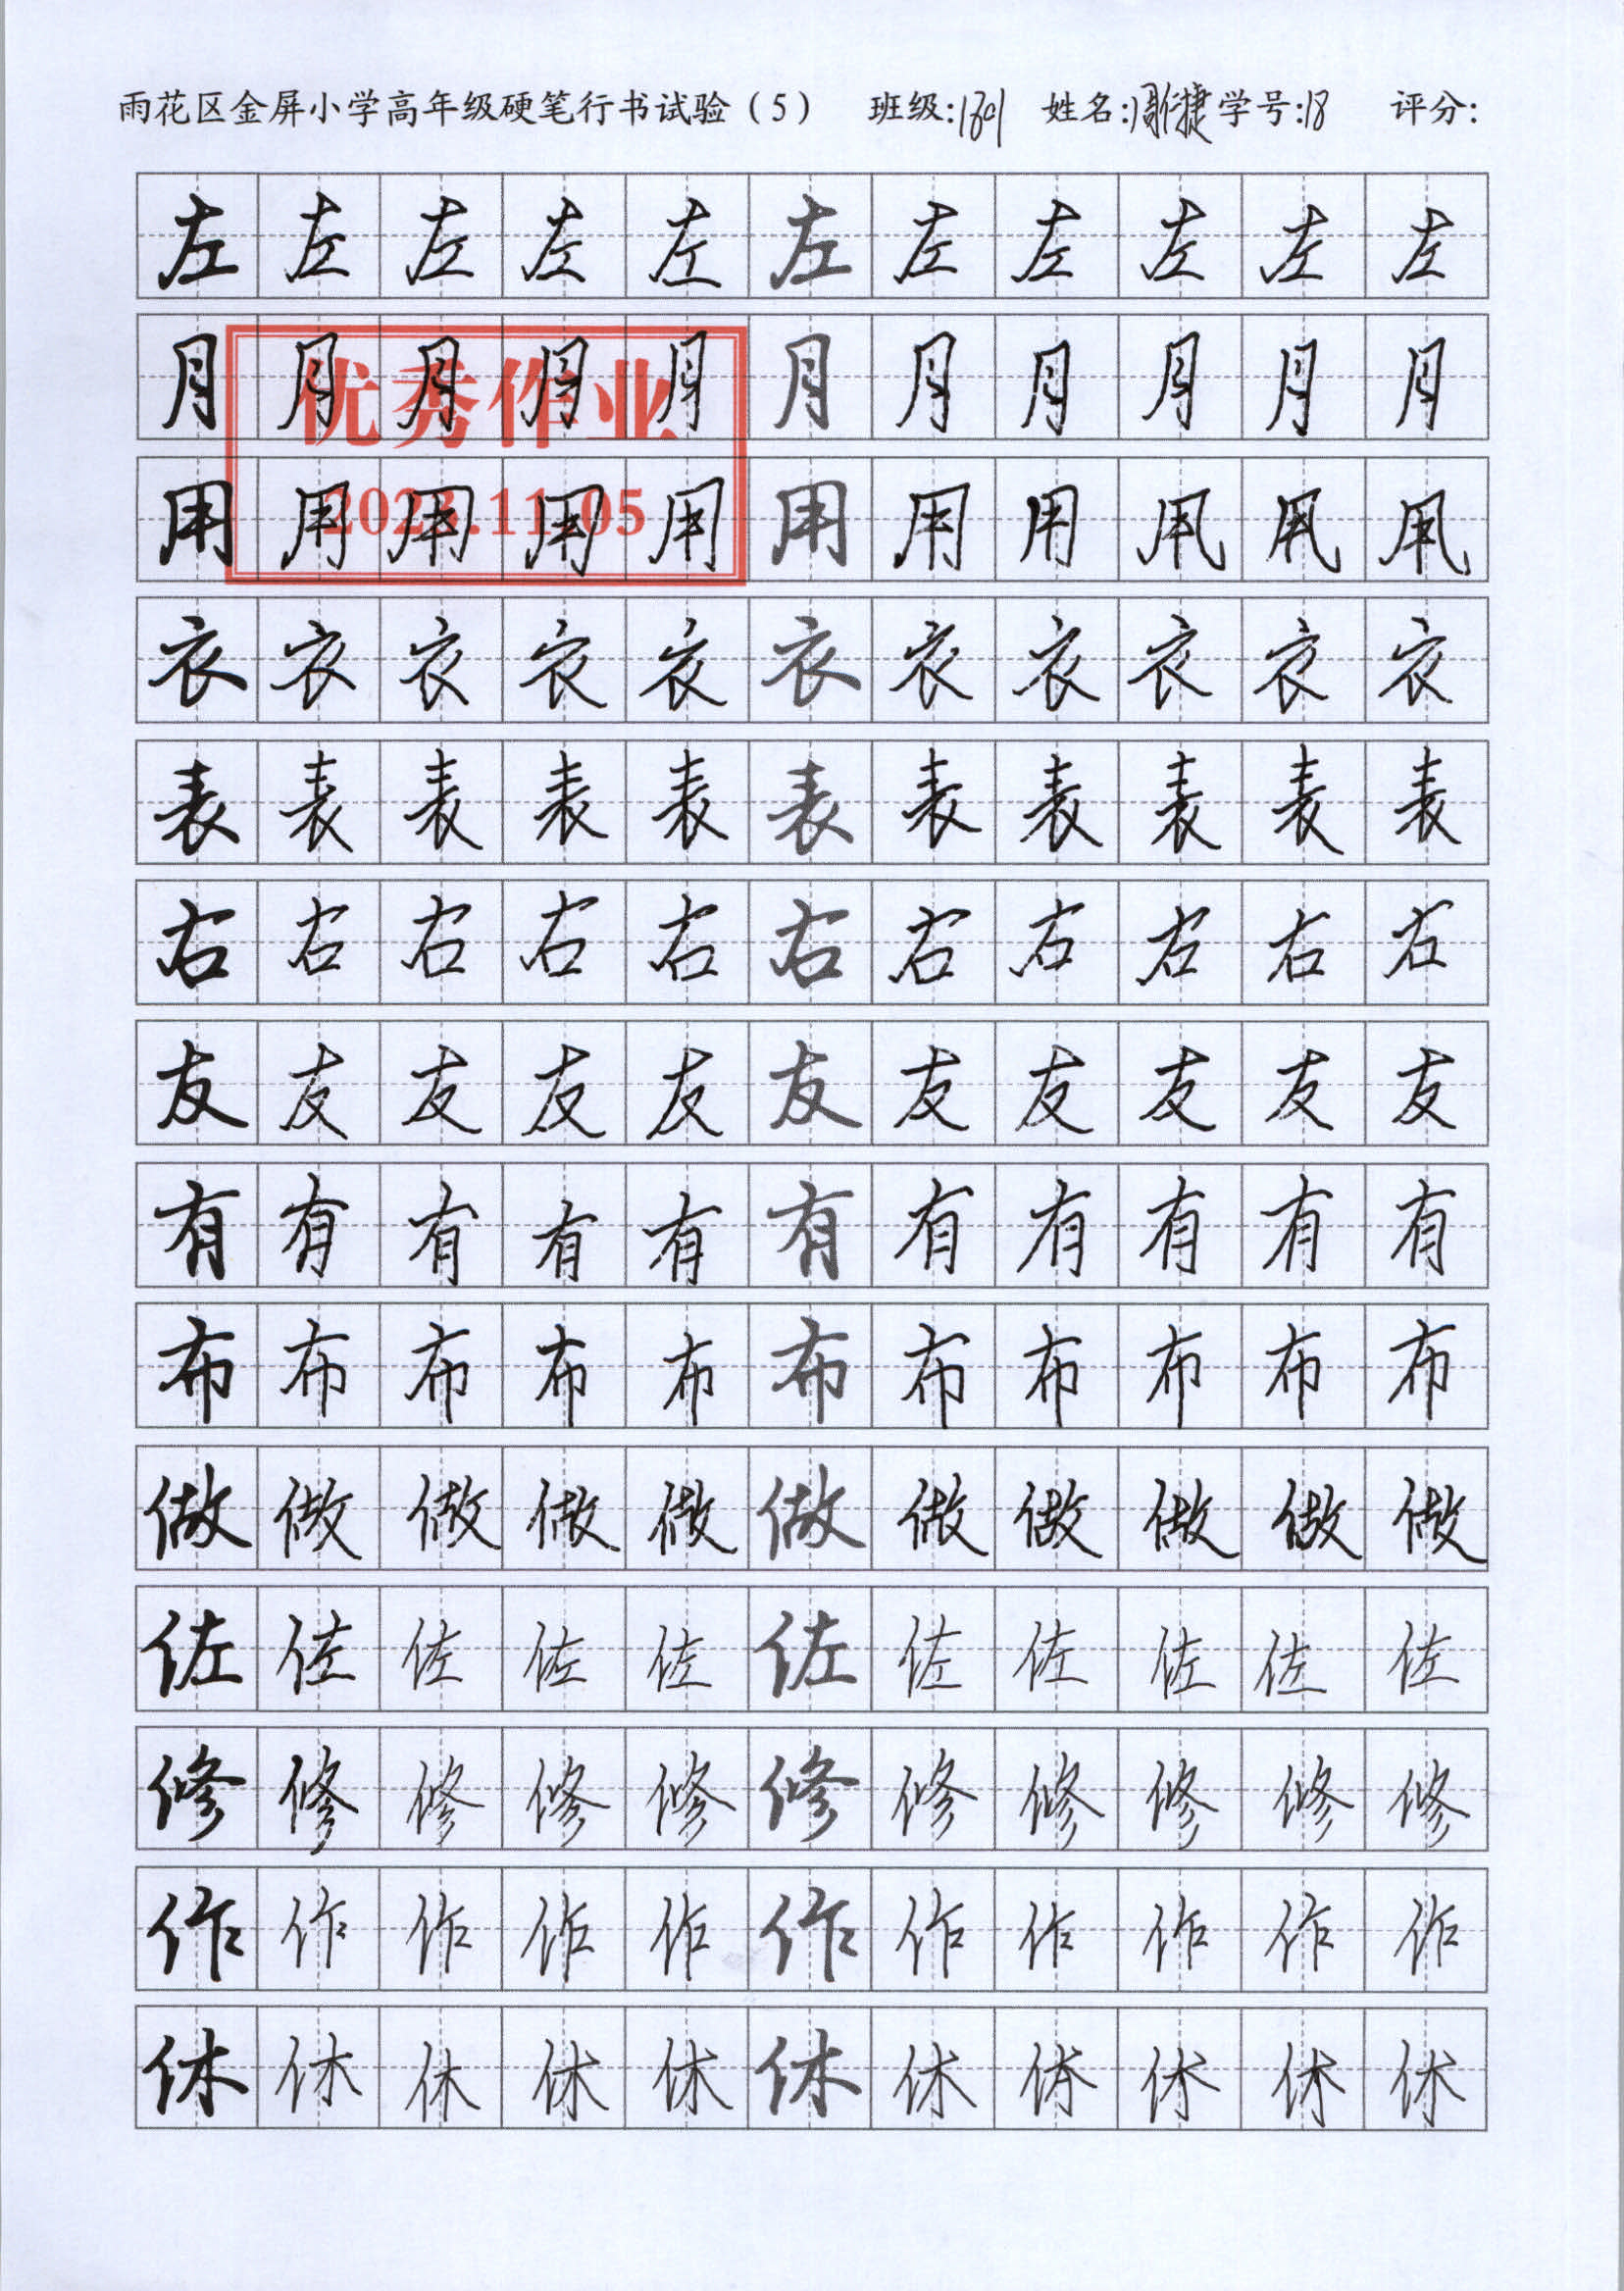 雨花区金屏小学高年级硬笔行书试验（5） 班级:1801 姓名: 学号:18 评分:
左左左左左左左左左左左
月月月月月月月月月月月
优秀作业
用用用用用用用用用用用
衣衣衣衣衣衣衣衣衣衣衣
表表表表表表表表表表表
右右右右右右右右右右右
友友友友友友友友友友友
有有有有有有有有有有有
布布布布布布布布布布布
做做做做做做做做做做做
佐佐佐佐佐佐佐佐佐佐佐
修修修修修修修修修修修
作作作作作作作作作作作
休休休休休休休休休休休